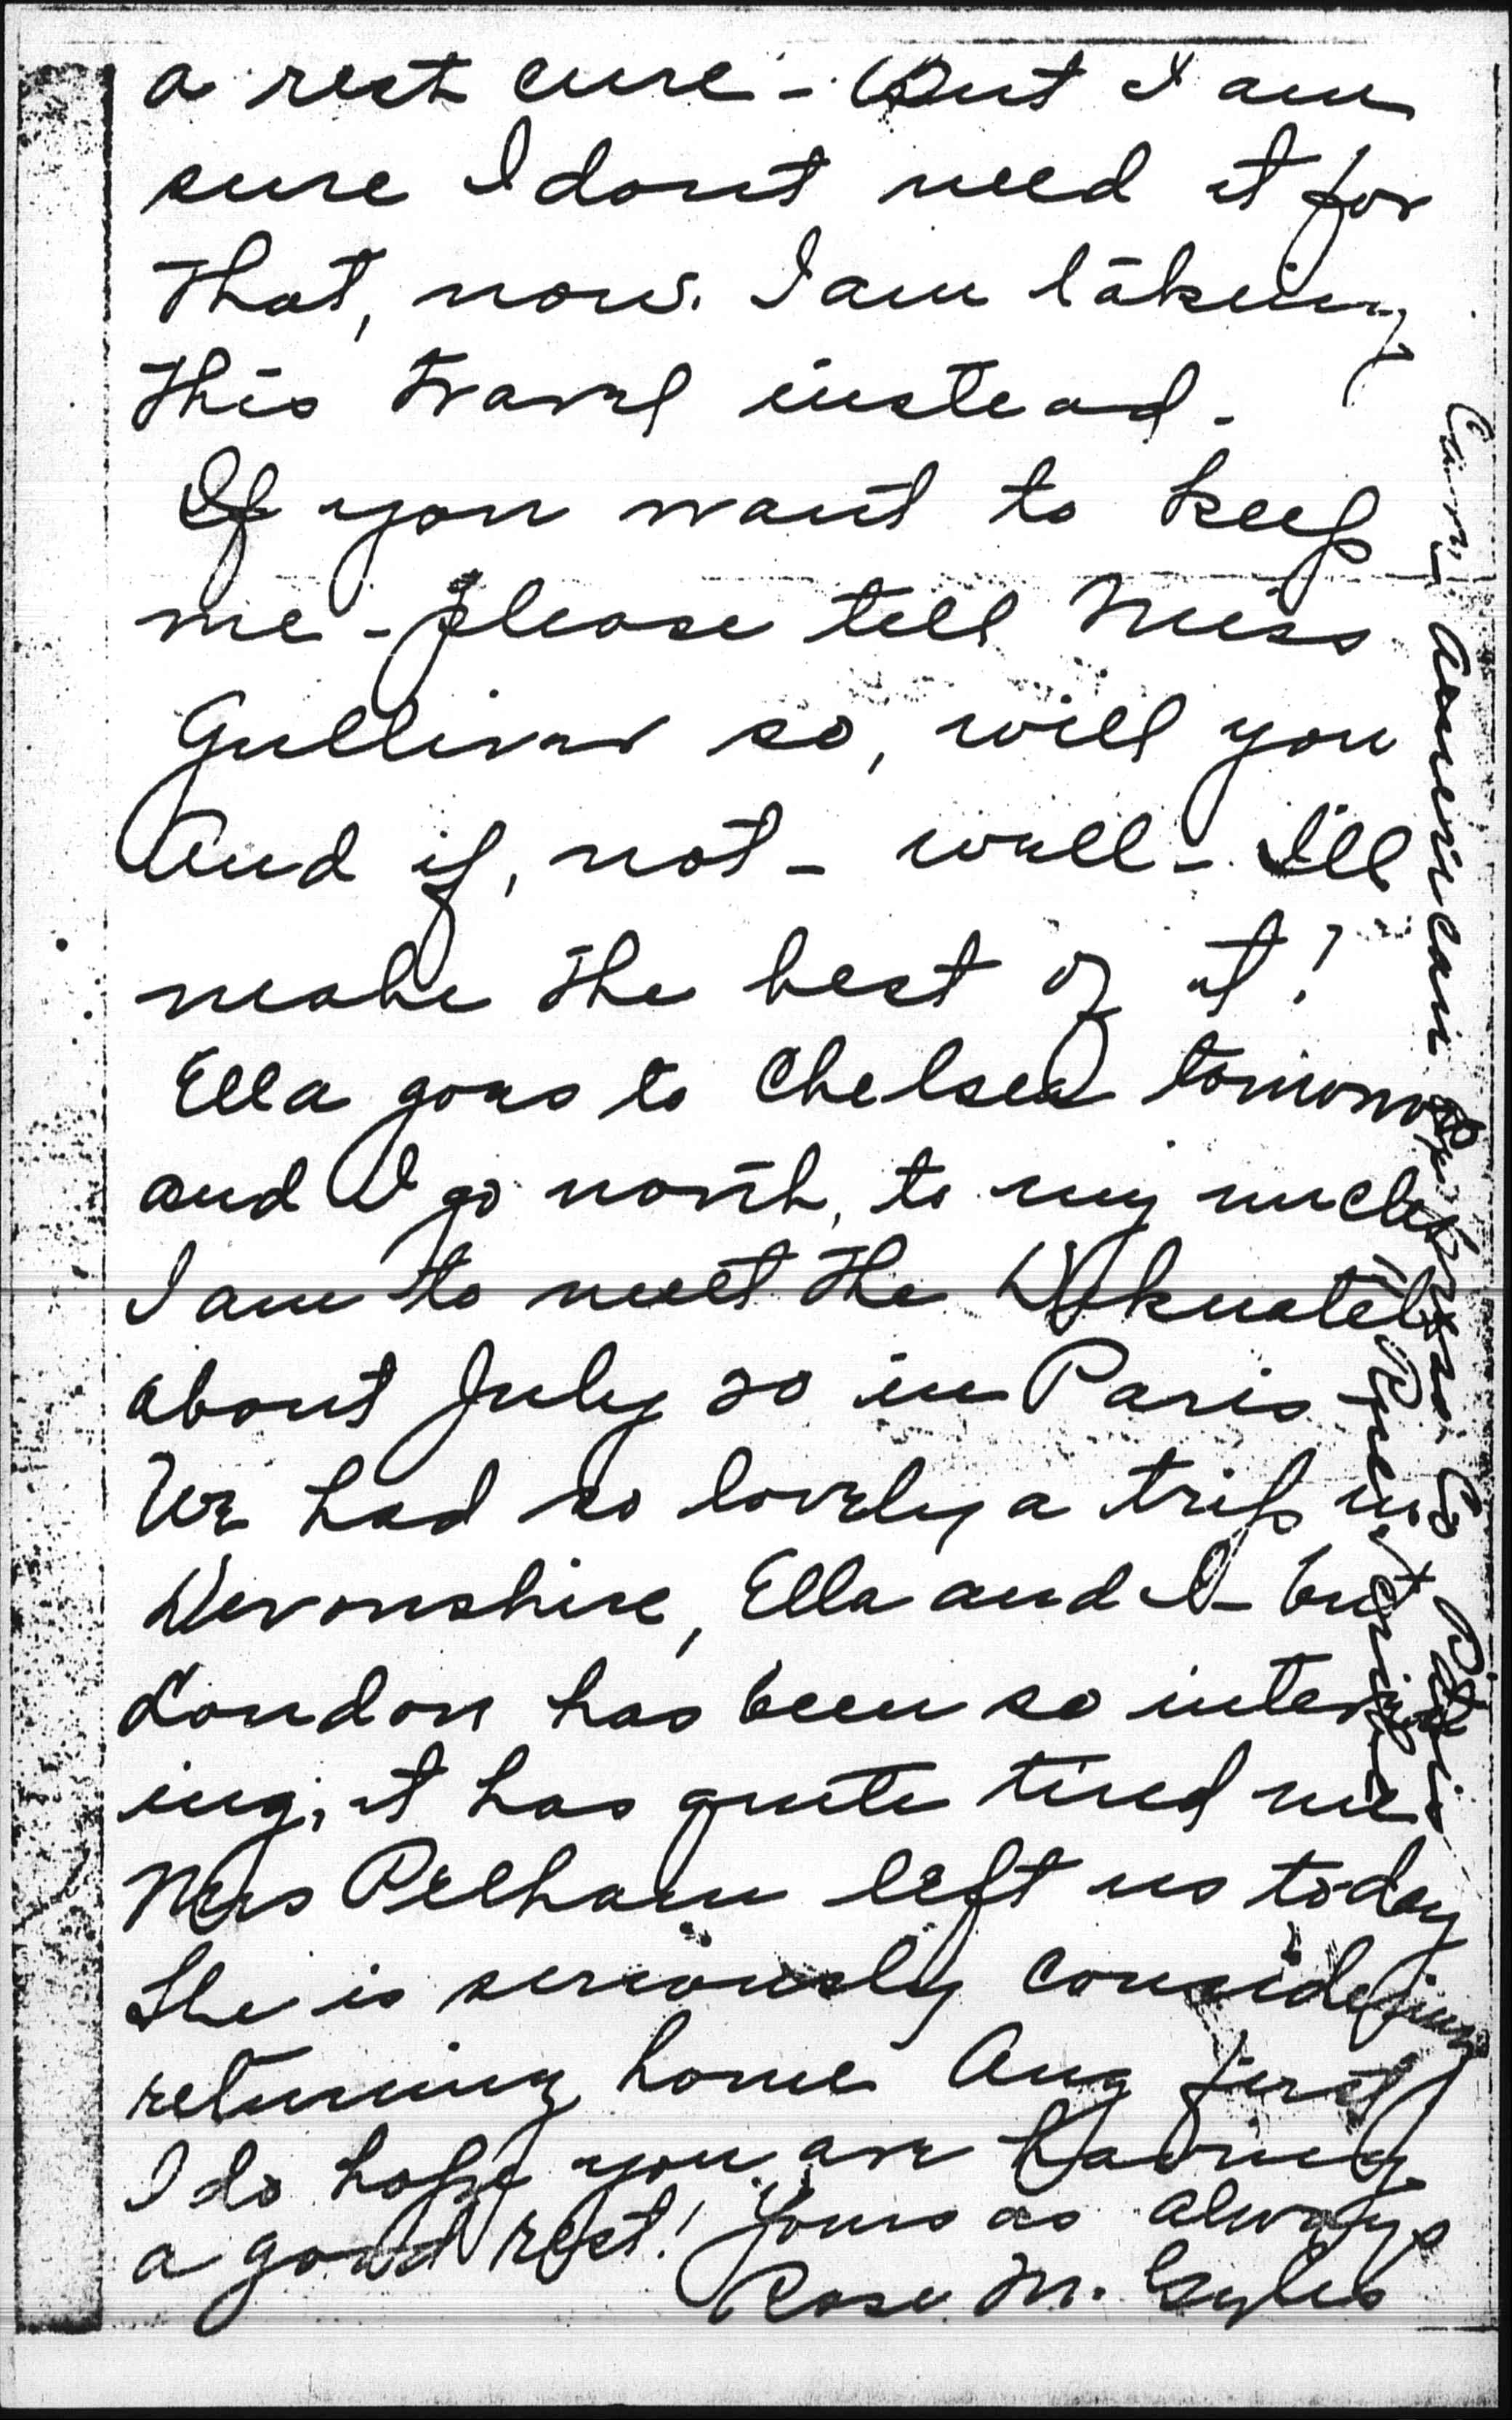 a rest cure - But I am
sure I dont need it for
that, now. I am taking
this travel instead -
If you want to keep
me - please tell Miss
Gulliver so, will you
And if, not - well - I'll
make the best of it!
Ella goes to Chelsea tomorrow
and I go north, to my uncles
I am to meet the
about July 20 in Paris
We had so lovely a trip in
Devonshire, Ella and I - but
London has been so interest
ing, it has quite tired me
Mrs Pelham left us today
She is seriously considering
returning home Aug first
I do hope you are having
a good rest! Yours as always
Rose M. Gyles
Care, American Express Co Paris
Rue Scribe